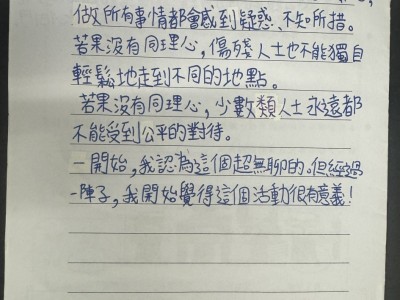 做所有事情都會感到疑惑、不知所措。
若果沒有同理心，傷殘人士也不能獨自
輕鬆地走到不同的地點。
若果沒有同理心，少數類人士永遠都
不能受到公平的對待。
一開始，我認為這個超無聊的。但經過
一陣子，我開始覺得這個活動很有意義！